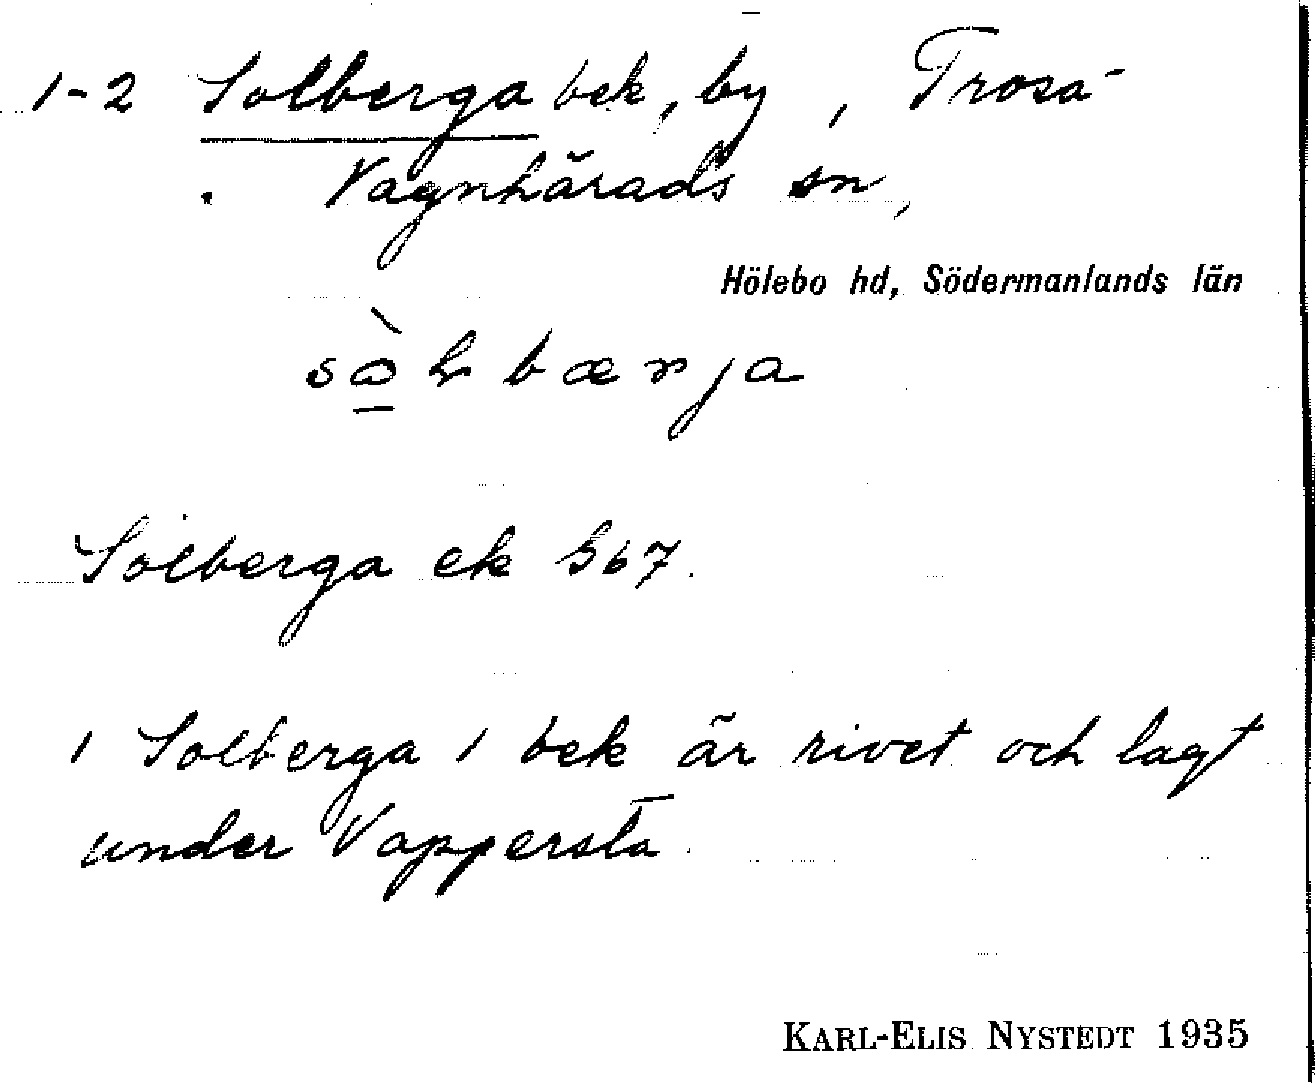 1-2 Solberga bek, by, Trosa-
Vagnhärads sn,
Hölebo hd, Södermanlands län
Solberga ek 567.
1 Solberga 1 bek är rivet och lagt
under Vappersta.
KARL-ELIS NYSTEDT 1935